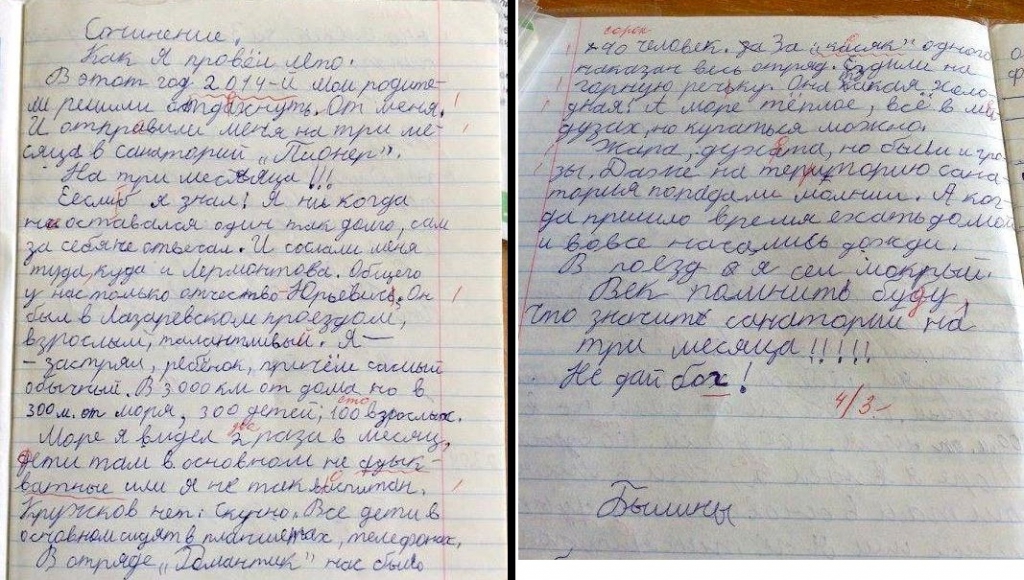 Сочинение.
Как я провёл лето.
В этот год 2014-й мои родите-
ли решили отдахнуть. От меня.
И отправили меня на три ме-
сяца в санаторий „Пионер".
На три месяца!!!
Еслиб я знал! Я ни когда
не оставался один так долго, сам
за себя не отвечал. И сослали меня
туда, куда и Лермонтова. Общего
у нас только отчество - Юрьевич. Он
был в Лазаревском проездом,
взрослый, талантливый. Я -
- застрял, ребёнок, причём самый
обычный. В 3000 км от дома но в
300 м. от моря, 300 детей, 100 взрослых.
сто
Море я видел 2 раза в месяц,
два
дети там в основном не адык-
ватные или я не так воспитан.
Кружков нет. Скучно. Все дети в
основном сидят в планшетах, телефонах.
В отряде „Романтик" нас было
сорок
40 человек. За „касяк" одного
наказан весь отряд. Ездили на
горную речьку. Она такая холо-
дная! А море тёплое, всё в ме-
дузах, но купаться можно.
Жара, духата, но были и гро-
зы. Даже на территорию сана-
тория попадали молнии. А ког-
да пришло время ехать домой
и вовсе начались дожди.
В поезд я сел мокрый.
Век помнить буду,
Что значит санаторий на
три месяца!!!!!!
Не дай бог!
4/3-
Былины